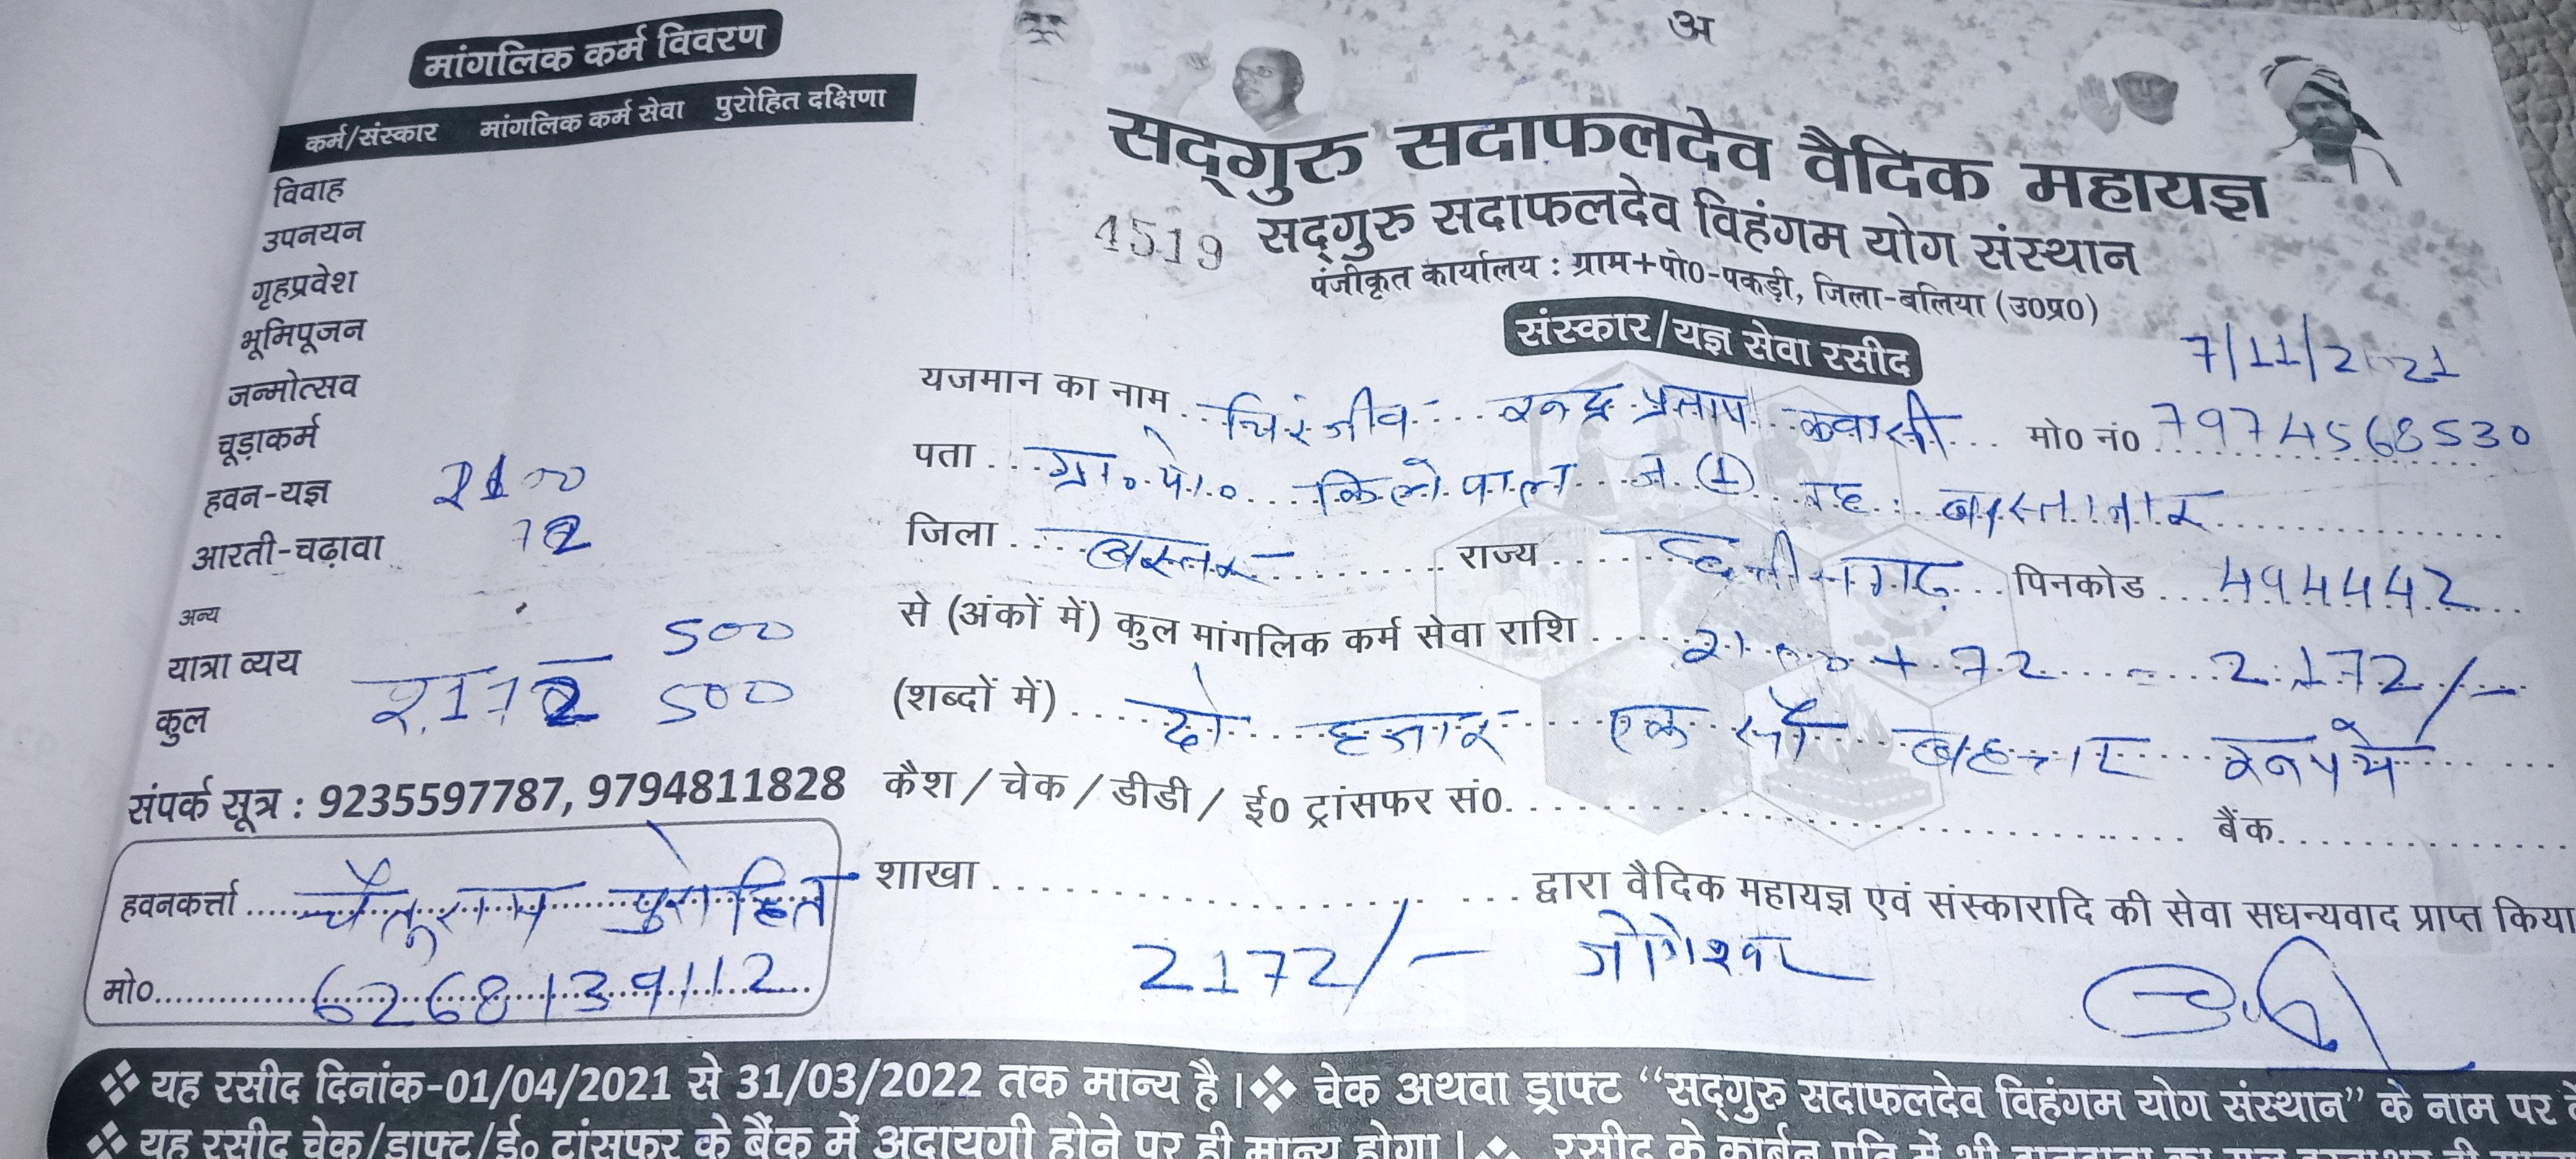 मांगलिक कर्म विवरण
कर्म/संस्कार मांगलिक कर्म सेवा पुरोहित दक्षिणा
विवाह
उपनयन
गृहप्रवेश
भूमिपूजन
जन्मोत्सव
चूड़ाकर्म
हवन-यज्ञ 2100
आरती-चढ़ावा 72
अन्य
यात्रा व्यय 500
कुल 2172 500
संपर्क सूत्र : 9235597787, 9794811828
हवनकर्त्ता चैतुराम पुरोहित
मो० 6268139112
अ
सद्गुरु सदाफलदेव वैदिक महायज्ञ
4519 सद्गुरु सदाफलदेव विहंगम योग संस्थान
पंजीकृत कार्यालय : ग्राम+पो0-पकड़ी, जिला-बलिया (उ0प्र0)
संस्कार/यज्ञ सेवा रसीद
7/11/2021
यजमान का नाम चिरंजीव रूद्र प्रताप कवासी मो0 नं0 7974568530
पता ग्रा.पो. किलेपाल नं. (1) तह: बास्तानार
जिला बस्तर राज्य छत्तीसगढ़ पिनकोड 494442
से (अंकों में) कुल मांगलिक कर्म सेवा राशि 2100 + 72 = 2172/-
(शब्दों में) दो हजार एक सौ बहत्तर रूपये
कैश / चेक / डीडी / ई0 ट्रांसफर सं0. बैंक
शाखा द्वारा वैदिक महायज्ञ एवं संस्कारादि की सेवा सधन्यवाद प्राप्त किया
2172/- जोगेश्वर
❖ यह रसीद दिनांक-01/04/2021 से 31/03/2022 तक मान्य है।❖ चेक अथवा ड्राफ्ट “सद्गुरु सदाफलदेव विहंगम योग संस्थान” के नाम पर
❖ यह रसीद चेक/ड्राफ्ट/ई० ट्रांसफर के बैंक में अदायगी होने पर ही मान्य होगा।❖ रसीद के कार्बन प्रति में भी